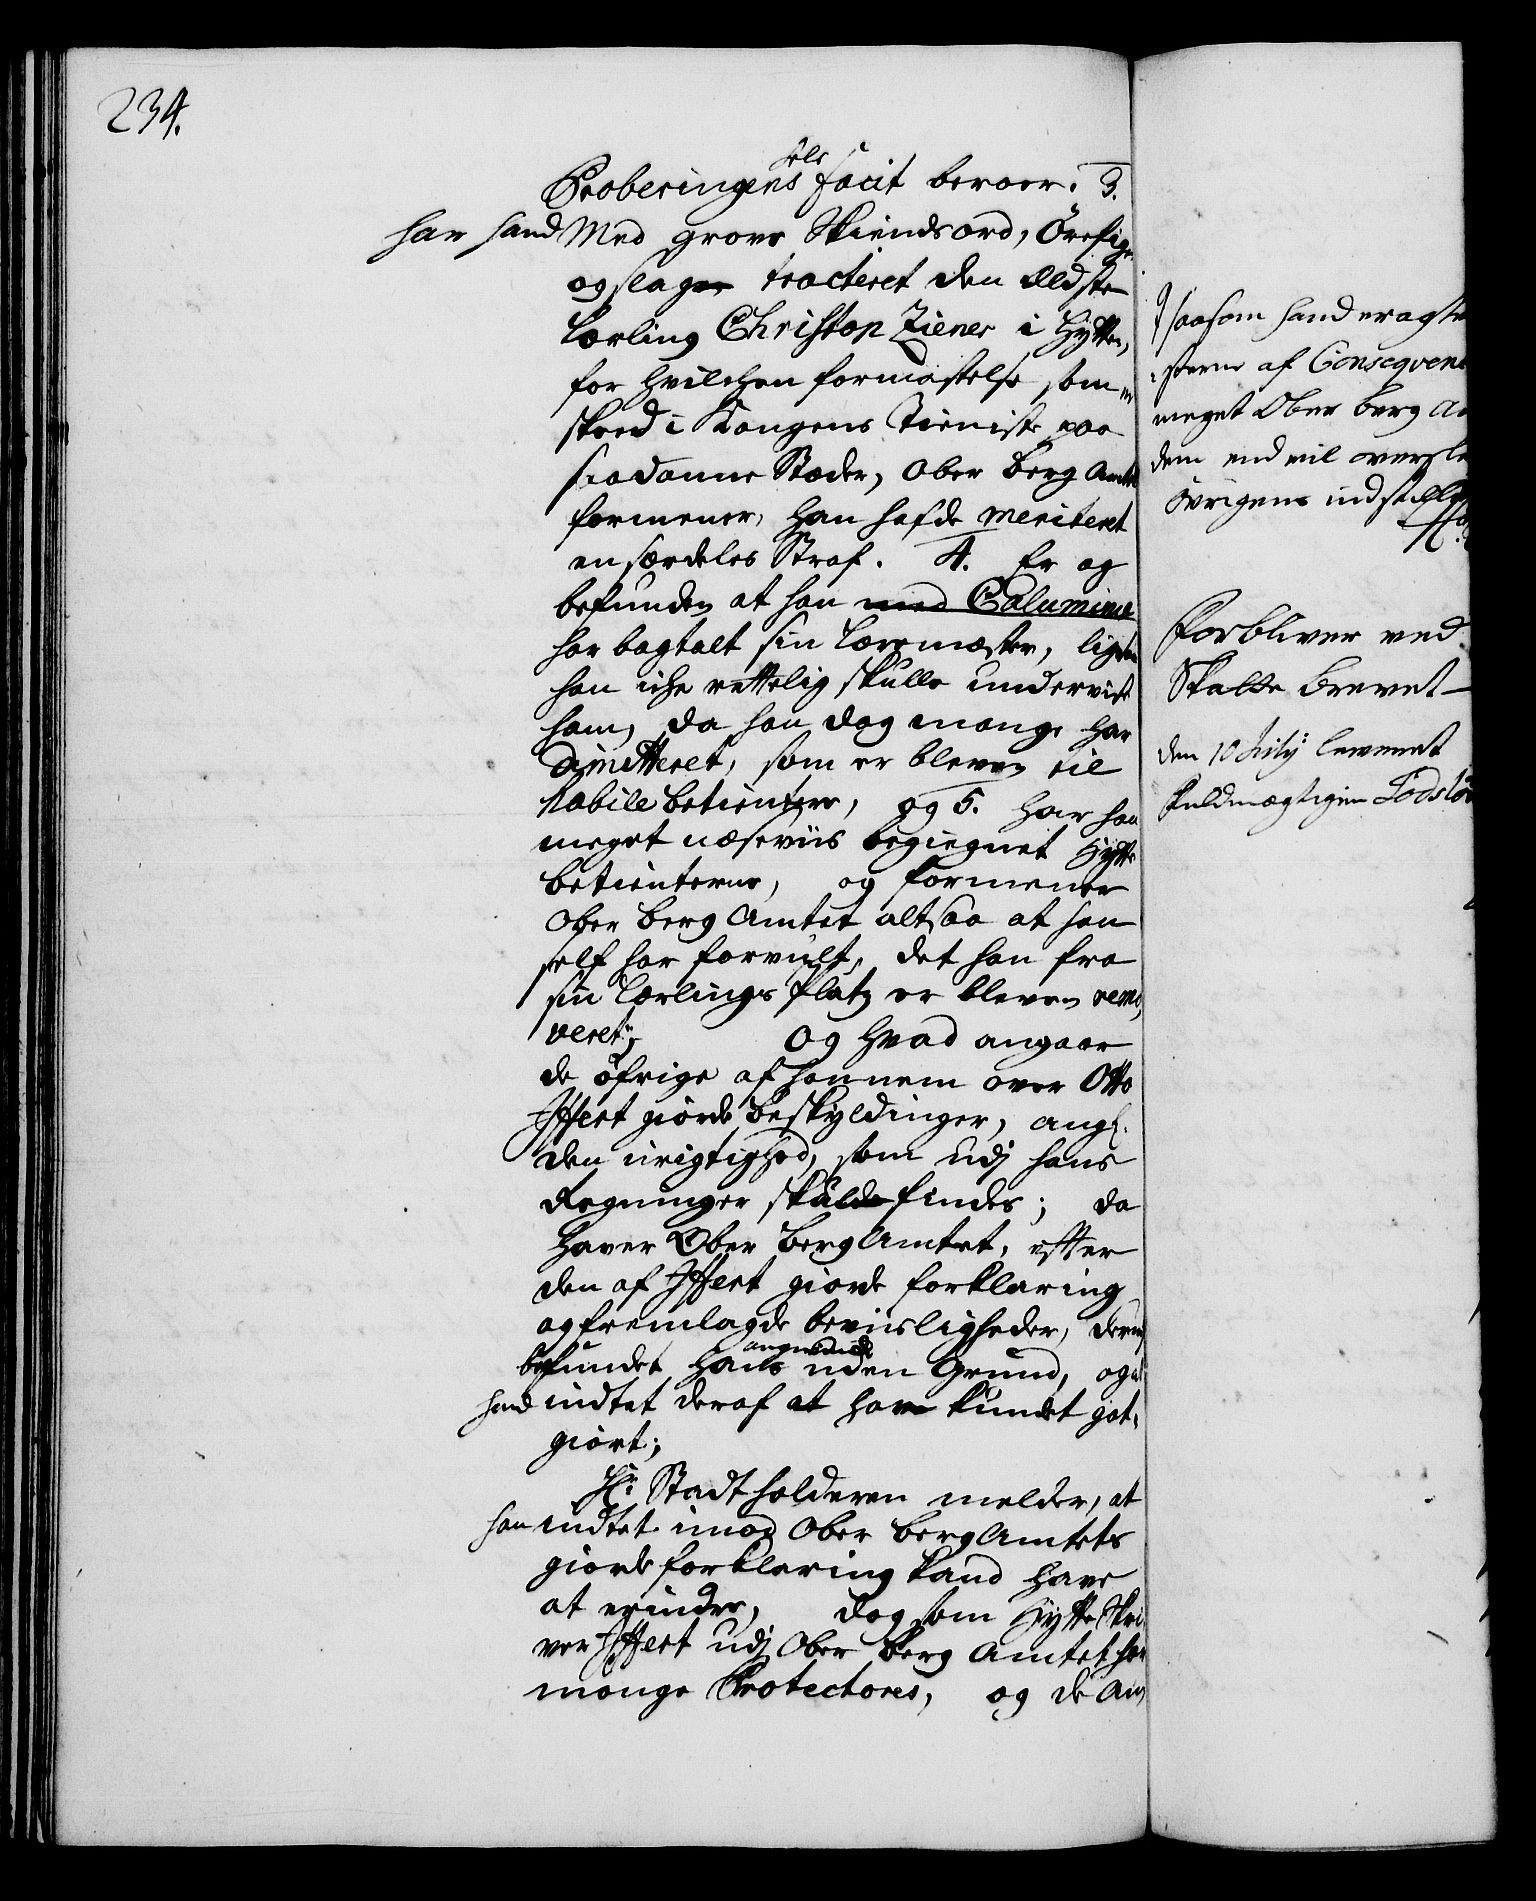 234.
Proberingens heele facit beroer. 3.
har hand Med grove Skiendsord, Örefige
og slag tracteret den Eldste
Lærling Christop Ziener i Hytten,
for hvilchen formastelse som er
skeed i Kongens Tieniste paa
saadanne Stæder, Ober Berg Amtet
formener, han hafde meriteret
en særdeles Straf. 4. Er og
befunden at han med Calumnie
har bagtalt sin Læremæster, ligesom
han iche rettelig skulle underviist
ham, da han dog mange har
dimitteret, som er bleven til
habile betientere, og 5. har han
meget næseviis begiegnet Hytte
betienterne, og formener
Ober Berg Amtet altsaa at han
self har forvult, det han fra
sin Lærlings Platz er bleven remo,
veret; Og hvad angaar
de öfrige af hannem over Otto
Iffert giorde beskyldinger, ang:
den urigtighed, som udj hans
Regninger skulde findes; da
haver Ober Berg Amtet, efter
den af Iffert giorde forklaring
og fremlagde beviisligheder, derudj
befundet hans angivende uden Grund, og at
hand indtet deraf at have kundet got,
giort;
Hr. Stadtholderen melder, at
han indtet imod Ober Berg Amtets
giorde forklaring kand have
at erindre, dog som Hytte Skri
ver Iffert udj Ober Berg Amtet har
mange Protectores, og de An
saasom hand eragte
isterne af Conseqvene
meget Ober Berg A
dem end vil oversle
övrigens indstille
Forbliver ved
Skatte brevet
den 10 July leveret
fuldmægtigen Lodsl